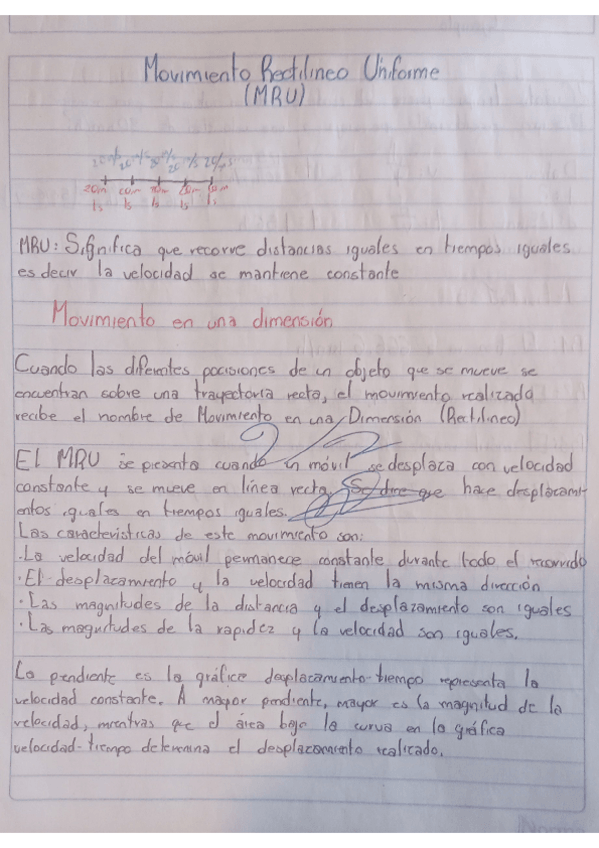 Movimiento Rectilineo Uniforme
(MRU)
20m
1s 1s 1s 1s 1s
MRU: Significa que recorre distancias iguales en tiempos iguales
es decir la velocidad se mantiene constante
Movimiento en una dimensión
Cuando las diferentes posisiones de un objeto que se mueve se
encuentran sobre una trayectoria recta, el movimiento realizado
recibe el nombre de Movimiento en una Dimensión (Rectilineo)
El MRU se presenta cuando un móvil se desplaza con velocidad
constante y se mueve en línea recta. Se dice que hace desplazami-
entos iguales en tiempos iguales.
Las caracteristicas de este movimiento son:
·La velocidad del móvil permanece constante durante todo el recorrido
·El desplazamiento y la velocidad tienen la misma dirección
·Las magnitudes de la distancia y el desplazamiento son iguales
·Las magnitudes de la rapidez y la velocidad son iguales.
La pendiente es la gráfica desplazamiento-tiempo representa la
velocidad constante. A mayor pendiente, mayor es la magnitud de la
velocidad, mientras que el área bajo la curva en la gráfica
velocidad-tiempo determina el desplazamiento realizado.